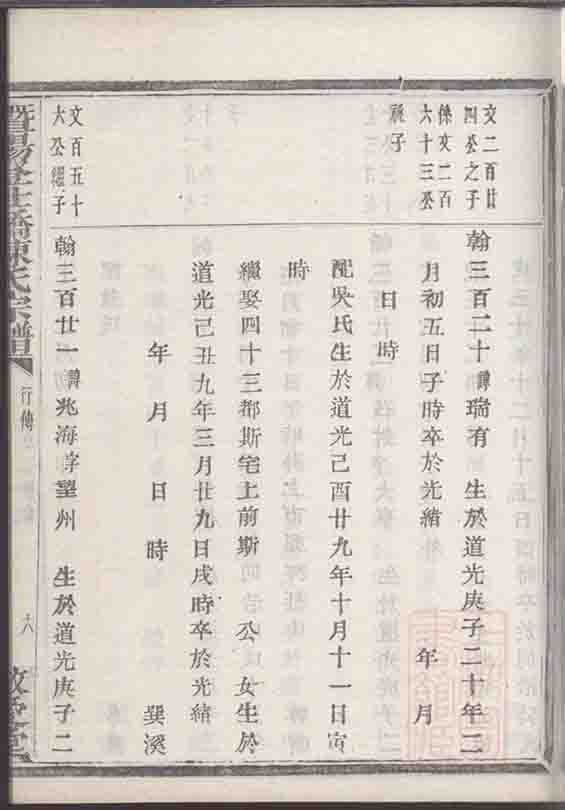 文二百廿
四公之子
係文二百
六十三公
祧子
翰三百二十諱瑞有　生於道光庚子二十年三
月初五日子時卒於光緒　年　月
日　時
配吳氏生於道光己酉廿九年十月十一日寅
時
繼娶四十三都斯宅上前斯　公　女生於
道光己丑九年三月廿九日戌時卒於光緒
年　月　日　時　巽溪
文百五十
六公繼子
翰三百廿一諱兆海字望州　生於道光庚子二
暨陽 陳氏宗譜
行傳